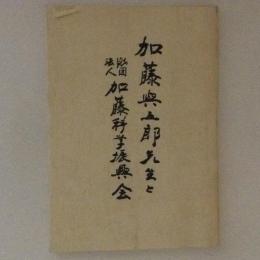 加藤與五郎先生と
社団法人
加藤科学振興会